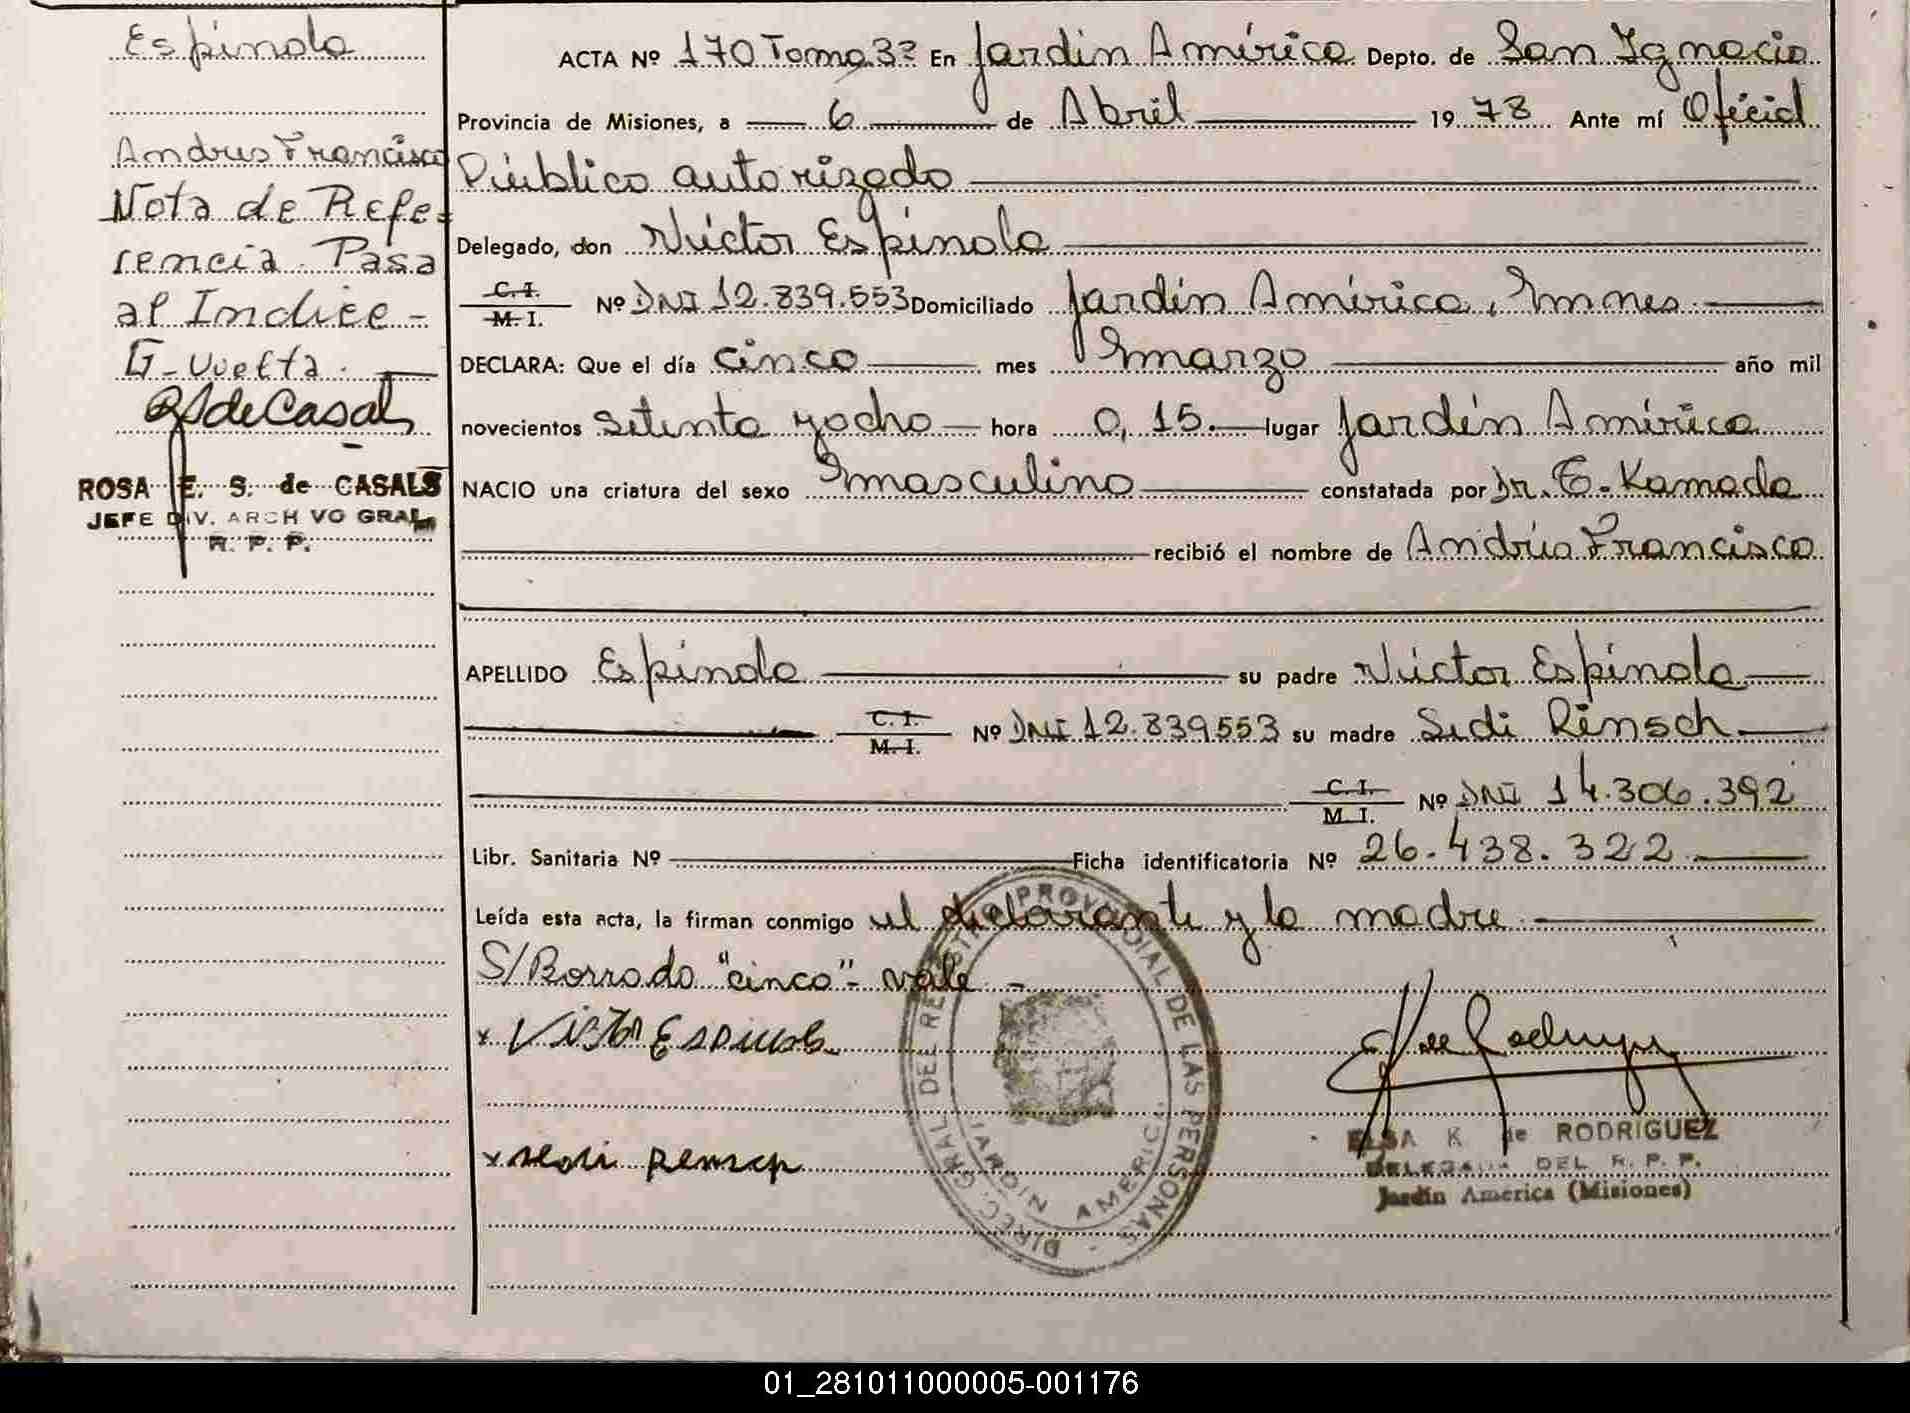 Espinola
Andres Francisco
Nota de Refe-
rencia. Pasa
al Indice-
G-Vuelta.
RSdeCasals
ROSA E. S. de CASALS
JEFE DIV. ARCHIVO GRAL.
R. P. P.
ACTA Nº 170 Tomo 3º En Jardín América Depto. de San Ignacio
Provincia de Misiones, a 6 de Abril 1978 Ante mí Oficial
Público autorizado
Delegado, don Víctor Espinola
C. I. / M. I. Nº DNI 12.839.553 Domiciliado Jardín América, Mnes
DECLARA: Que el día cinco mes marzo año mil
novecientos setenta y ocho hora 0,15. lugar Jardín América
NACIO una criatura del sexo masculino constatada por Dr. T. Kamada
recibió el nombre de Andrés Francisco
APELLIDO Espinola su padre Víctor Espinola
C. I. / M. I. Nº DNI 12.839553 su madre Sedi Rinsch
C. I. / M. I. Nº DNI 14.306.392
Libr. Sanitaria Nº Ficha identificatoria Nº 26.438.322
Leída esta acta, la firman conmigo el declarante y la madre
S/Borrado "cinco"- vale -
x Victor Espinola
x sedi
DIREC. GRAL. DEL REGISTRO PROVINCIAL DE LAS PERSONAS -
JARDIN AMERICA
ELSA K de RODRIGUEZ
DELEGADA DEL R. P. P.
Jardín America (Misiones)
01_281011000005-001176